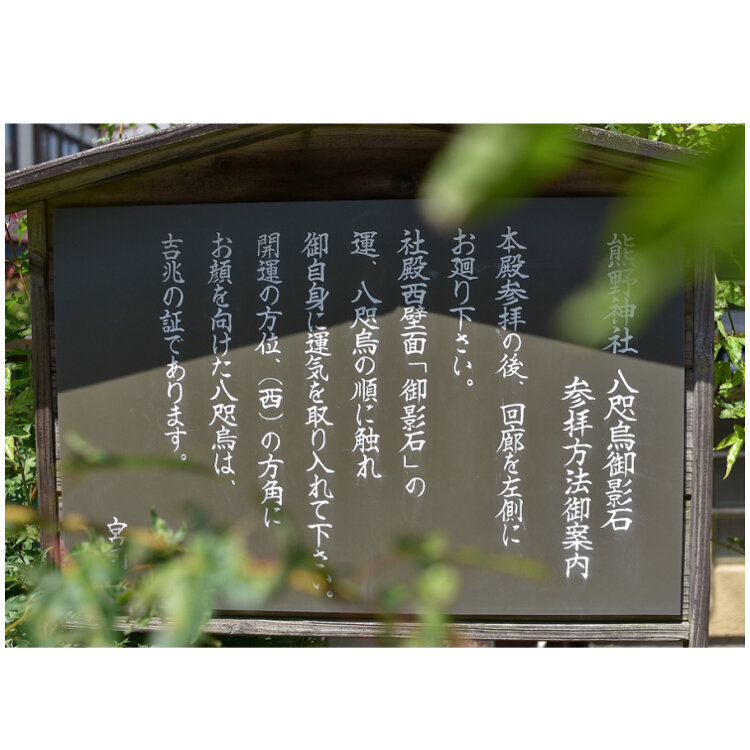 熊野神社 八咫烏御影石
参拝方法御案内
本殿参拝の後、回廊を左側に
お廻り下さい。
社殿西壁面「御影石」の
運、八咫烏の順に触れ
御自身に運気を取り入れて下さい。
開運の方位、（西）の方角に
お顔を向けた八咫烏は、
吉兆の証であります。